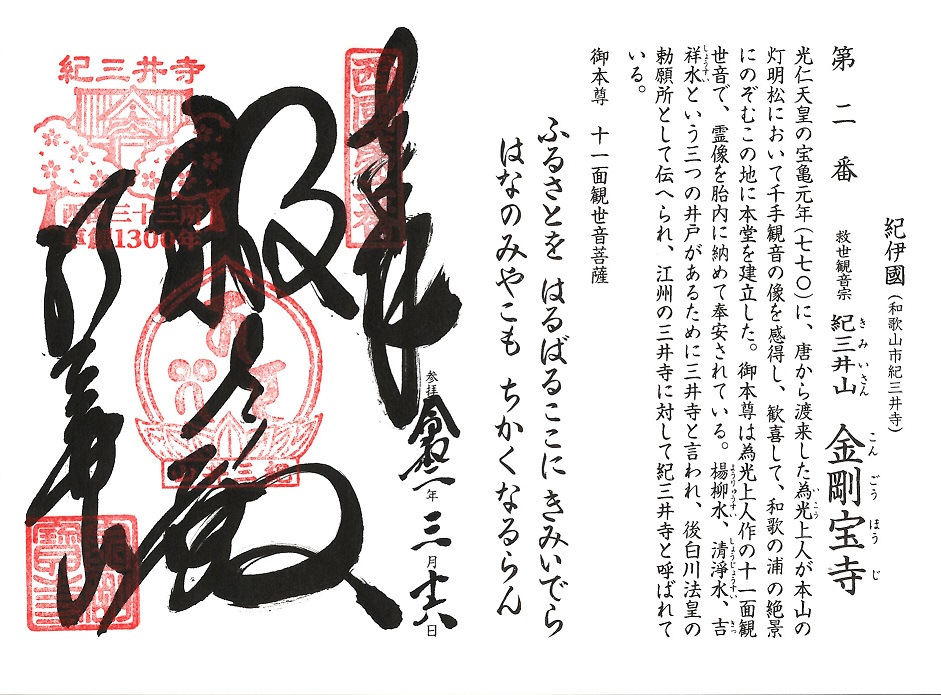 紀伊國(和歌山市紀三井寺)
第二番 救世観音宗 紀三井山 金剛宝寺
きみいさん こんごうほうじ
光仁天皇の宝亀元年(七七〇)に、唐から渡来した為光上人が本山の
いこう
灯明松において千手観音の像を感得し、歓喜して、和歌の浦の絶景
にのぞむこの地に本堂を建立した。御本尊は為光上人作の十一面観
世音で、霊像を胎内に納めて奉安されている。楊柳水、清浄水、吉
ようりゅうすい しょうじょうすい きっ
祥水という三つの井戸があるために三井寺と言われ、後白川法皇の
しょうすい
勅願所として伝へられ、江州の三井寺に対して紀三井寺と呼ばれて
いる。
御本尊 十一面観世音菩薩
ふるさとを はるばるここに きみいでら
はなのみやこも ちかくなるらん
参拝 令和二年 三月十六日
奉拝
紀三井寺
西国三十三所
草創1300年
紀三井山